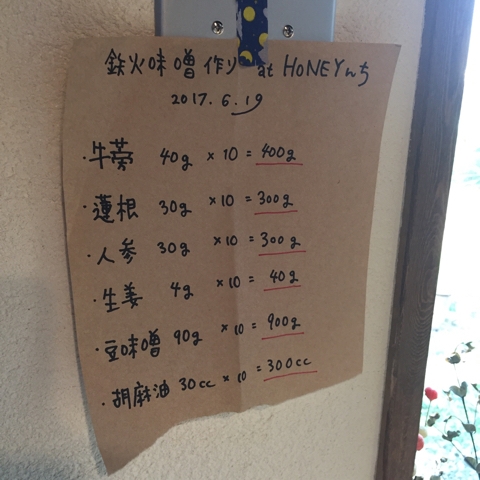 鉄火味噌作り at HONEYんち
2017.6.19
・牛蒡 40g ×10 = 400g
・蓮根 30g ×10 = 300g
・人参 30g ×10 = 300g
・生姜 4g ×10 = 40g
・豆味噌 90g ×10 = 900g
・胡麻油 30cc ×10 = 300cc